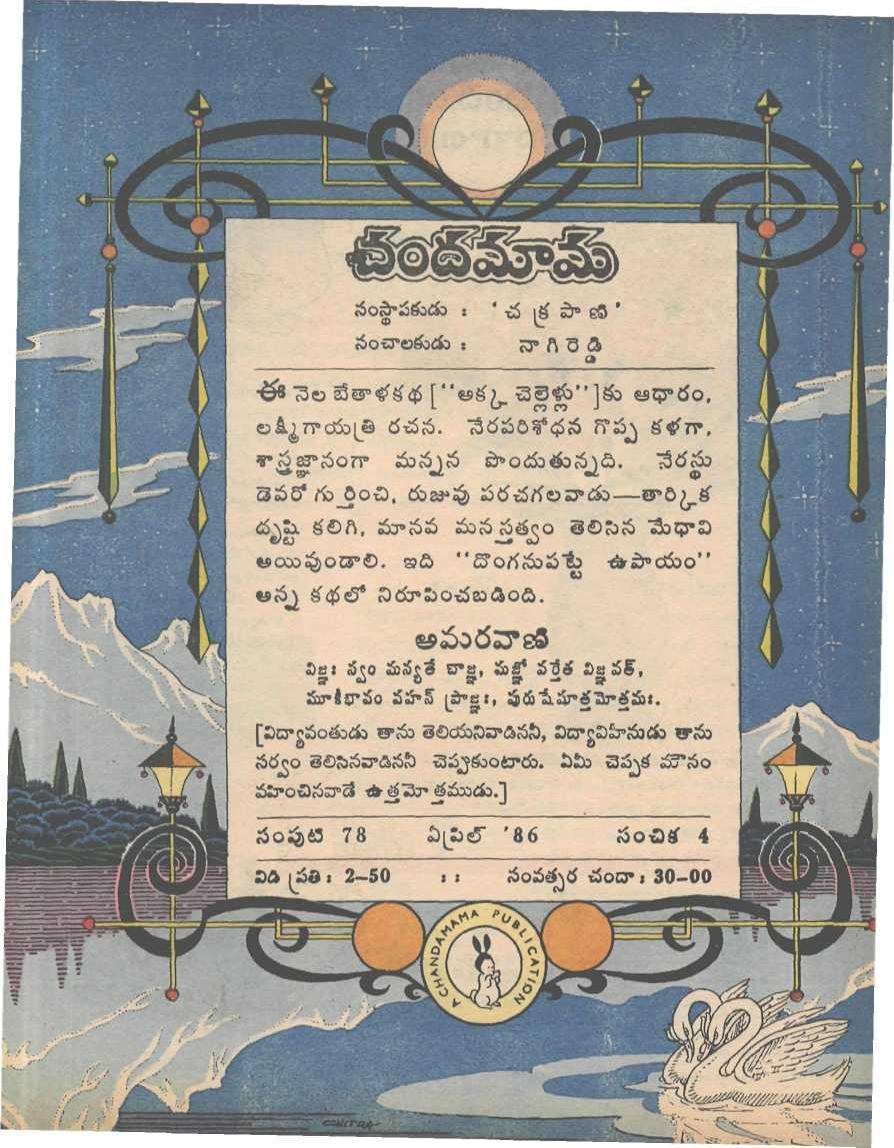 చందమామ
సంస్థాపకుడు : 'చక్రపాణి'
సంచాలకుడు : నాగిరెడ్డి
ఈ నెల బేతాళకథ ["అక్క చెల్లెళ్లు"]కు ఆధారం,
లక్ష్మీగాయత్రి రచన. నేరపరిశోధన గొప్ప కళగా,
శాస్త్రజ్ఞానంగా మన్నన పొందుతున్నది. నేరస్థు
డెవరో గుర్తించి, రుజువు పరచగలవాడు—తార్కిక
దృష్టి కలిగి, మానవ మనస్తత్వం తెలిసిన మేధావి
అయివుండాలి. ఇది "దొంగనుపట్టే ఉపాయం"
అన్న కథలో నిరూపించబడింది.
అమరవాణి
విజ్ఞః స్వం మన్యతే చాజ్ఞ, మజ్ఞో వర్తేత విజ్ఞవత్,
మూకీభావం వహన్ ప్రాజ్ఞః, పురుషేషూత్తమోత్తమః.
[విద్యావంతుడు తాను తెలియనివాడిననీ, విద్యావిహీనుడు తాను
సర్వం తెలిసినవాడిననీ చెప్పుకుంటారు. ఏమీ చెప్పక మౌనం
వహించినవాడే ఉత్తమోత్తముడు.]
సంపుటి 78 ఏప్రిల్ '86 సంచిక 4
విడి ప్రతి : 2-50 : : సంవత్సర చందా : 30-00
A CHANDAMAMA PUBLICATION
CHITRA